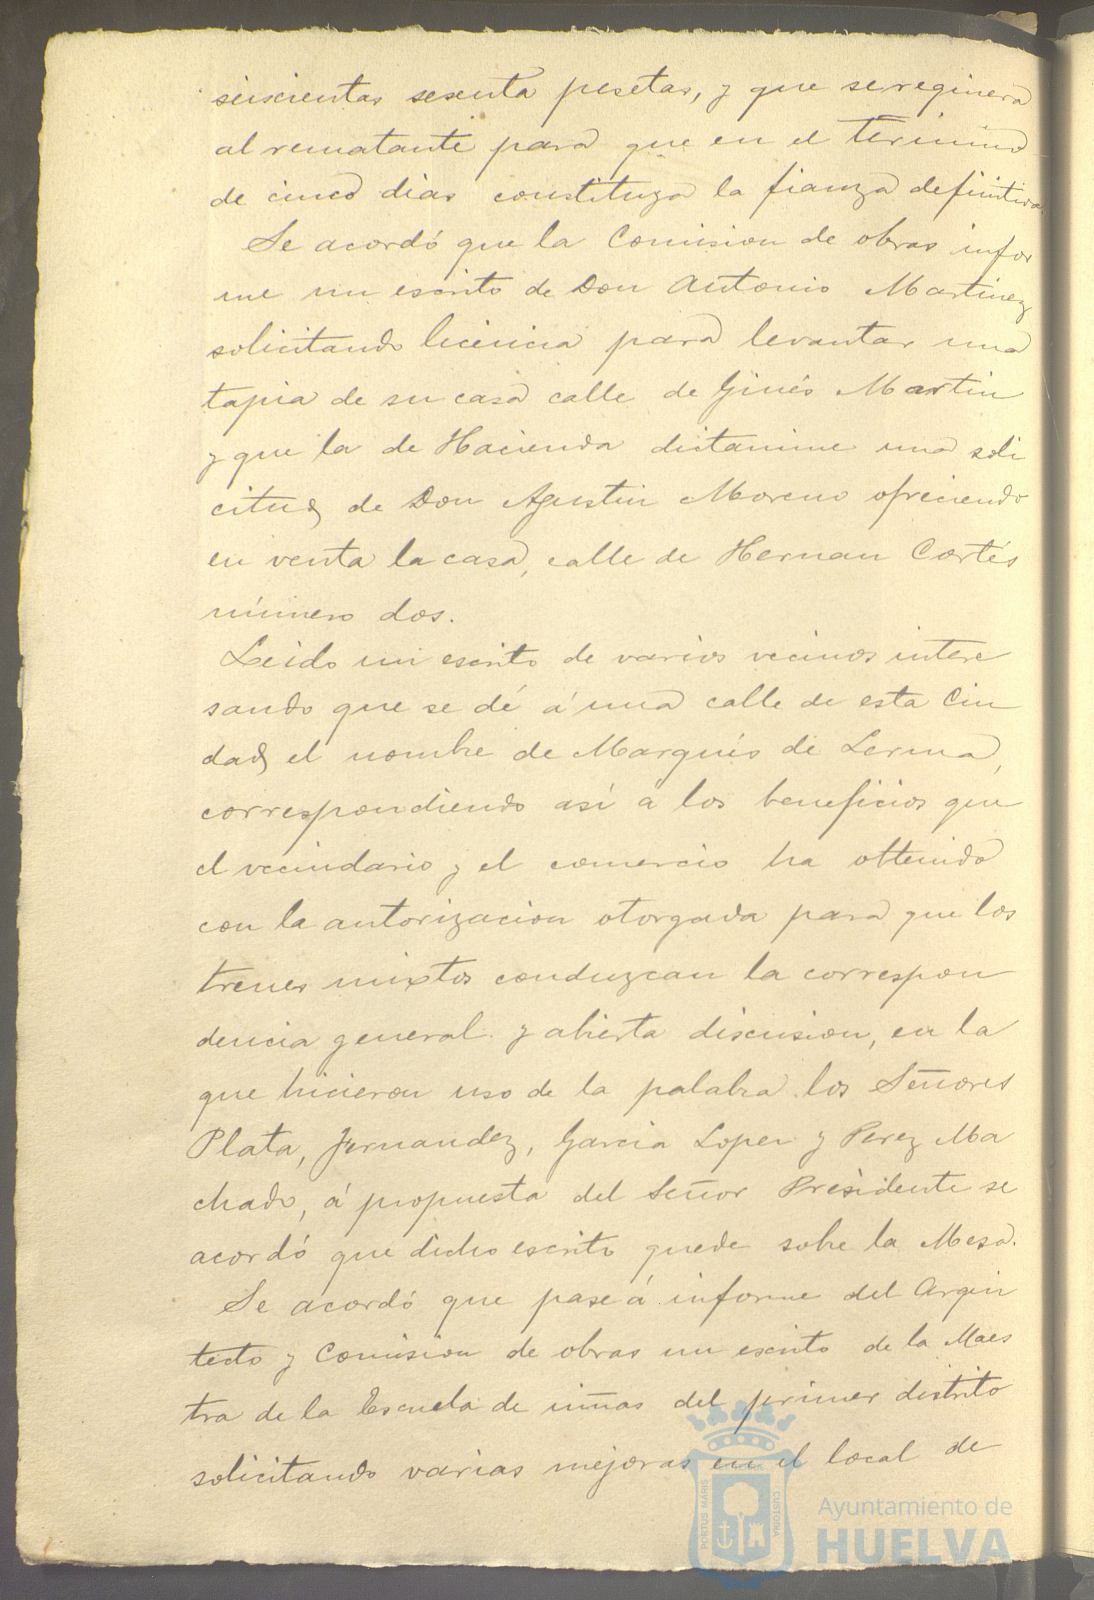 seiscientas sesenta pesetas, y que se requiera
al rematante para que en el término
de cinco dias constituya la fianza definitiva.
Se acordó que la Comision de obras infor
me un escrito de Don Antonio Martinez
solicitando licencia para levantar una
tapia de su casa calle de Ginés Martin
y que la de Hacienda dictamine una soli
citud de Don Agustin Moreno ofreciendo
en venta la casa, calle de Hernan Cortés
número dos.
Leido un escrito de varios vecinos intere
sando que se dé á una calle de esta Ciu
dad el nombre de Marqués de Lerma,
correspondiendo así a los beneficios que
el vecindario y el comercio ha obtenido
con la autorizacion otorgada para que los
trenes mixtos conduzcan la correspon
dencia general y abierta discusion, en la
que hicieron uso de la palabra los Señores
Plata, Fernandez, Garcia Lopez y Perez Ma
chado, á propuesta del Señor Presidente se
acordó que dicho escrito quede sobre la Mesa.
Se acordó que pase á informe del Arqui
tecto y Comision de obras un escrito de la Maes
tra de la Escuela de niñas del primer distrito
solicitando varias mejoras en el local de
PORTUS MARIS
CUSTODIA
Ayuntamiento de
HUELVA